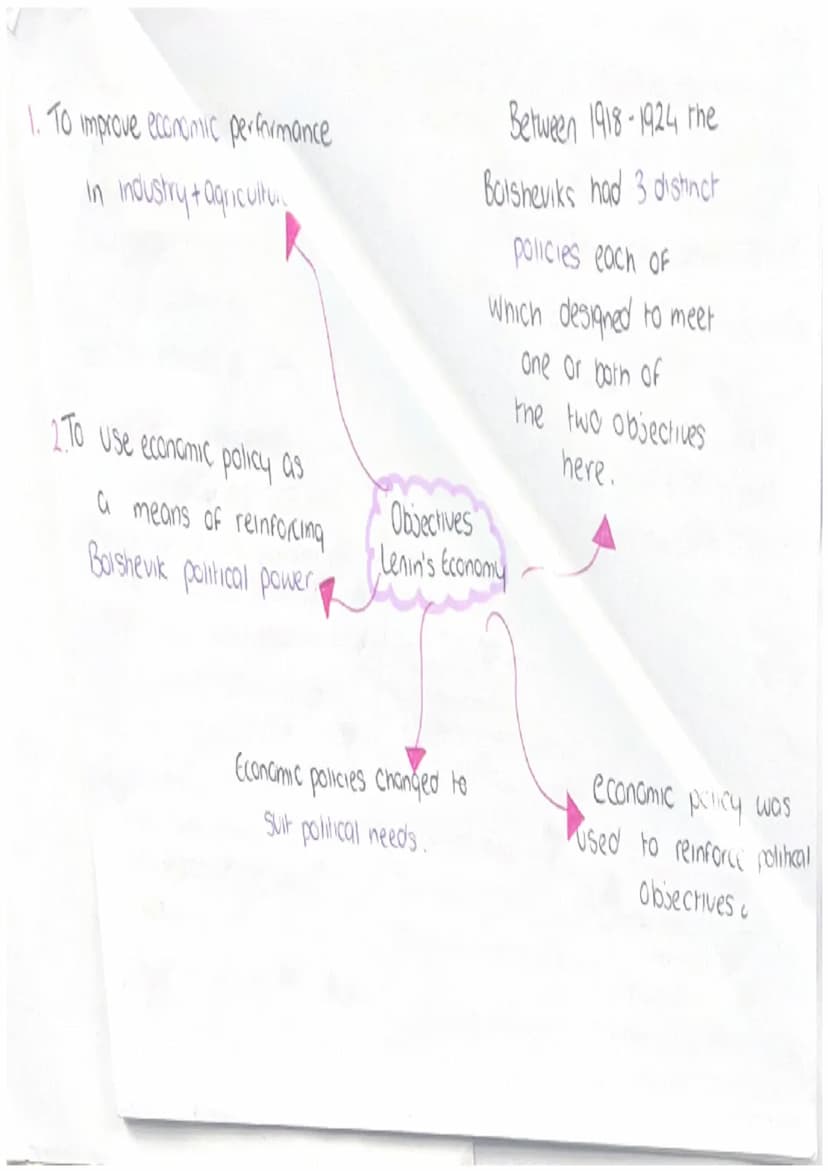 1. To improve economic performance
in industry + agricultur
Between 1918-1924 the
Bolsheviks had 3 distinct
policies each of
which designed to meet
one or both of
the two objectives
here.
2. To use economic policy as
a means of reinforcing
Bolshevik political power.
Objectives
Lenin's Economy
Economic policies changed to
suit political needs.
economic policy was
used to reinforce political
objectives.